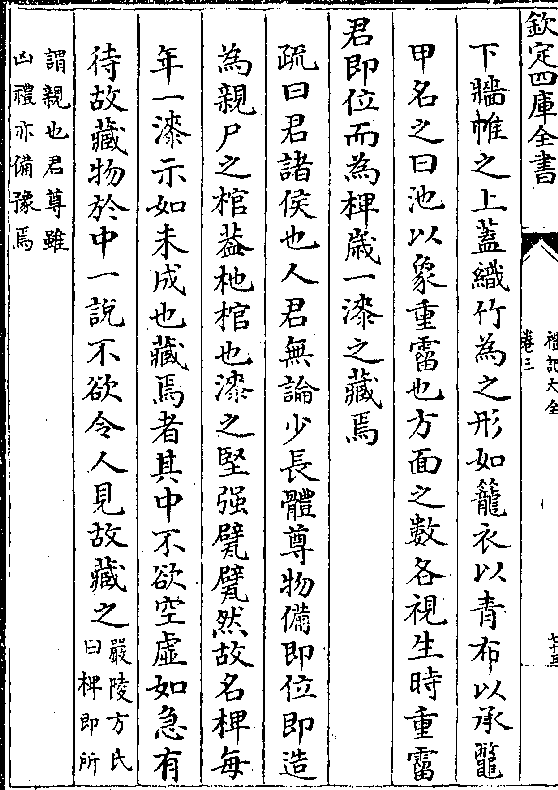 欽定四庫全書
禮記大全
卷三
下牆帷之上蓋織竹為之形如籠衣以青布以承鼈
甲名之曰池以象重霤也方面之數各視生時重霤
君即位而為椑歲一漆之藏焉
疏曰君諸侯也人君無論少長體尊物備即位即造
為親尸之棺蓋杝棺也漆之堅强甓甓然故名椑每
年一漆示如未成也藏焉者其中不欲空虛如急有
待故藏物於中一說不欲令人見故藏之嚴陵方氏
曰椑即所
謂親也君尊雖
凶禮亦備豫焉